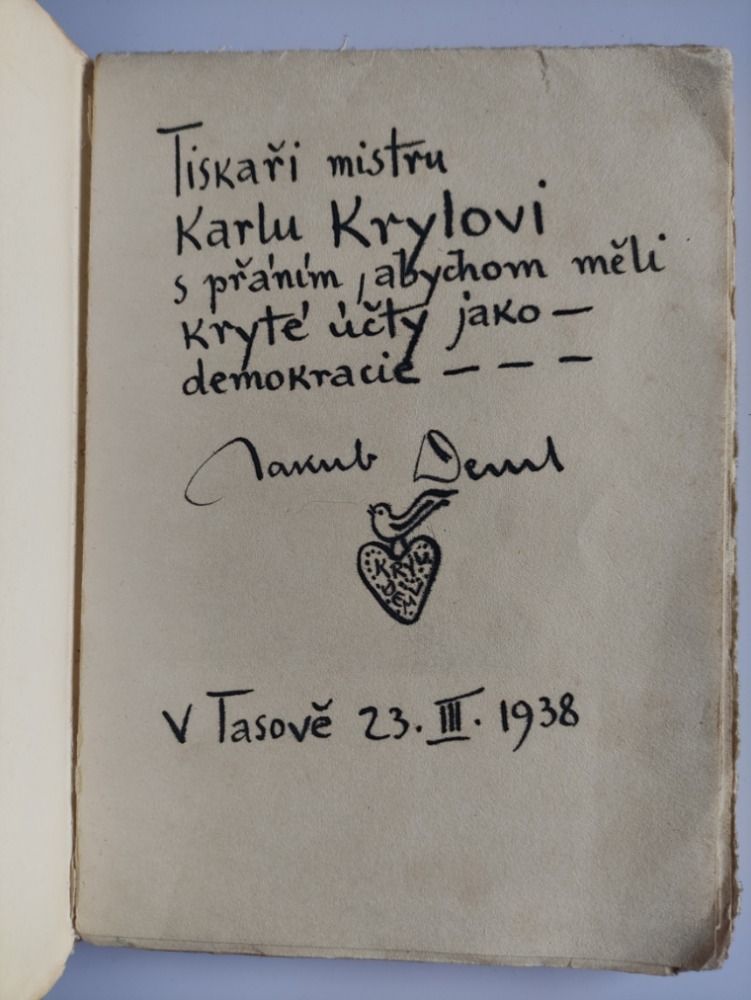 Tiskaři mistru
Karlu Krylovi
s přáním, abychom měli
kryté účty jako —
demokracie — — —
Jakub Deml
KRYL
DEML
V Tasově 23. III. 1938